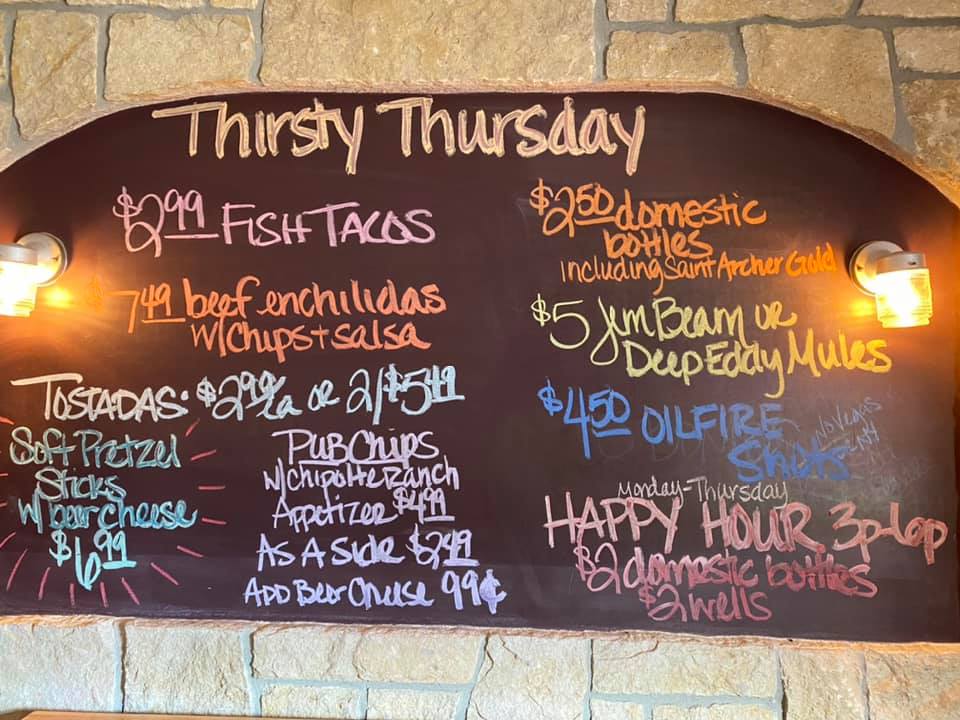 Thirsty Thursday
$2.99 FISH TACOS
$7.49 beef enchilidas
w/chips + salsa
TOSTADAS: $2.99/ea or 2/$5.49
Soft Pretzel
Sticks
w/ beer cheese
$6.99
Pub Chips
w/chipotle ranch
Appetizer $4.99
As A Side $2.49
Add Beer Cheese 99¢
$2.50 domestic
bottles
including Saint Archer Gold
$5 Jim Beam or
Deep Eddy Mules
$4.50 OILFIRE
Shots
Monday-Thursday
HAPPY HOUR 3p-6p
$2 domestic bottles
$2 wells